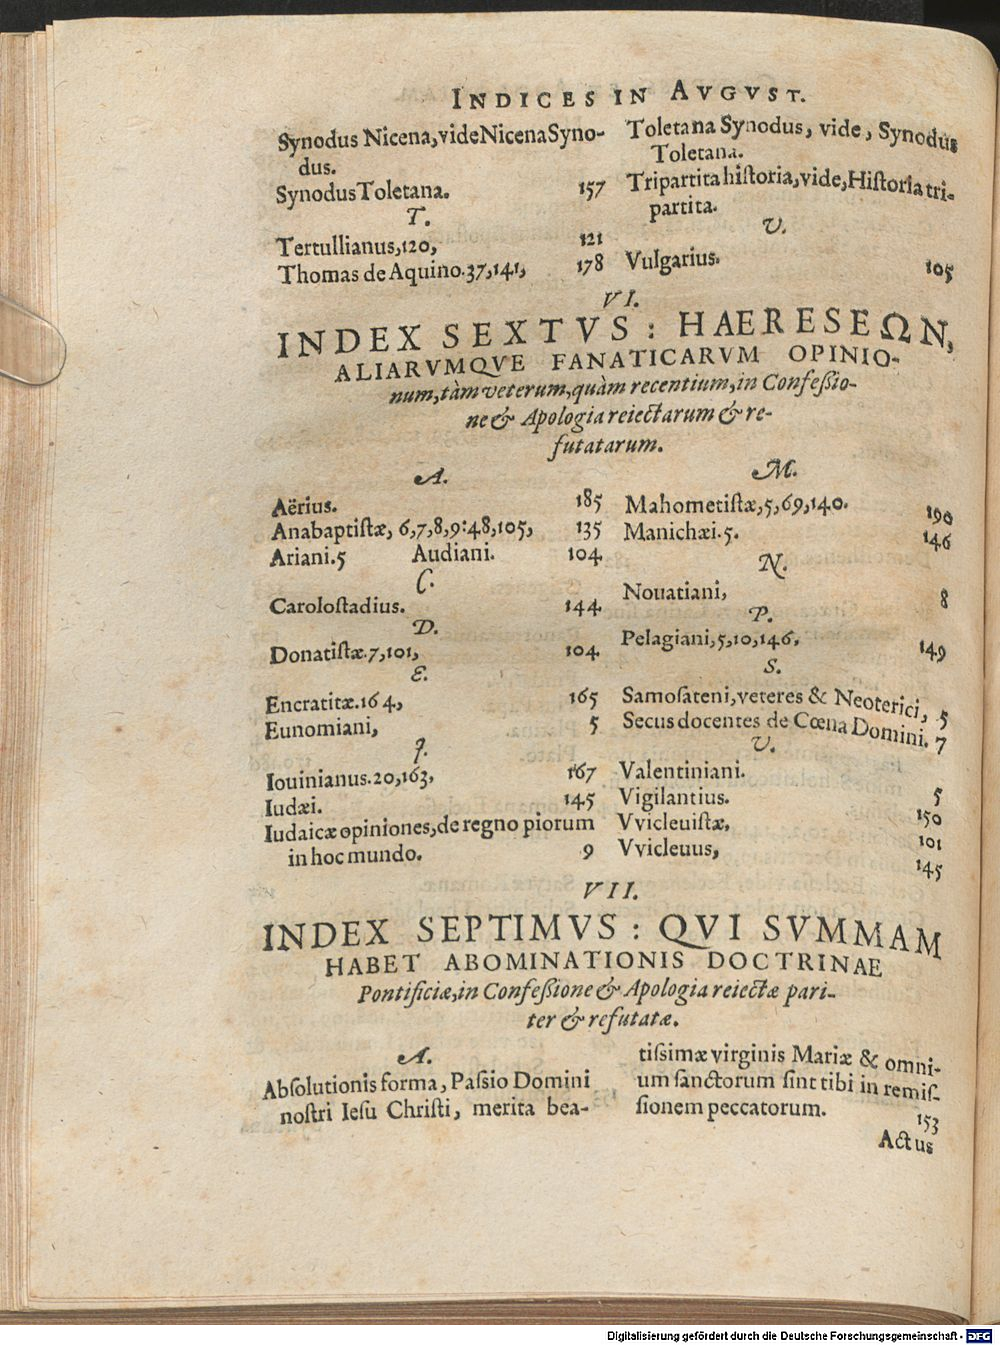 INDICES IN AVGVST.
Synodus Nicena, vide Nicena Syno-
dus.
Synodus Toletana. 157
T.
Tertullianus, 120, 121
Thomas de Aquino. 37, 141, 178
Toletana Synodus, vide, Synodus
Toletana.
Tripartita historia, vide, Historia tri-
partita.
V.
Vulgarius. 105
VI.
INDEX SEXTVS: HAERESEΩN,
ALIARVMQVE FANATICARVM OPINIO-
num, tàm veterum, quàm recentium, in Confeßio-
ne & Apologia reiectarum & re-
futatarum.
A.
Aërius. 185
Anabaptistæ, 6, 7, 8, 9: 48, 105, 135
Ariani. 5 Audiani. 104
C.
Carolostadius. 144
D.
Donatistæ. 7, 101, 104
E.
Encratitæ. 164, 165
Eunomiani, 5
I.
Iouinianus. 20, 163, 167
Iudæi. 145
Iudaicæ opiniones, de regno piorum
in hoc mundo. 9
M.
Mahometistæ, 5, 69, 140. 190
Manichæi. 5. 146
N.
Nouatiani, 8
P.
Pelagiani, 5, 10, 146, 149
S.
Samosateni, veteres & Neoterici, 5
Secus docentes de Cœna Domini. 7
V.
Valentiniani. 5
Vigilantius. 150
Vvicleuistæ, 101
Vvicleuus, 145
VII.
INDEX SEPTIMVS: QVI SVMMAM
HABET ABOMINATIONIS DOCTRINAE
Pontificiæ, in Confeßione & Apologia reiectæ pari-
ter & refutatæ.
A.
Absolutionis forma, Passio Domini
nostri Iesu Christi, merita bea-
tissimæ virginis Mariæ & omni-
um sanctorum sint tibi in remis-
sionem peccatorum. 153
Actus
Digitalisierung gefördert durch die Deutsche Forschungsgemeinschaft - DFG